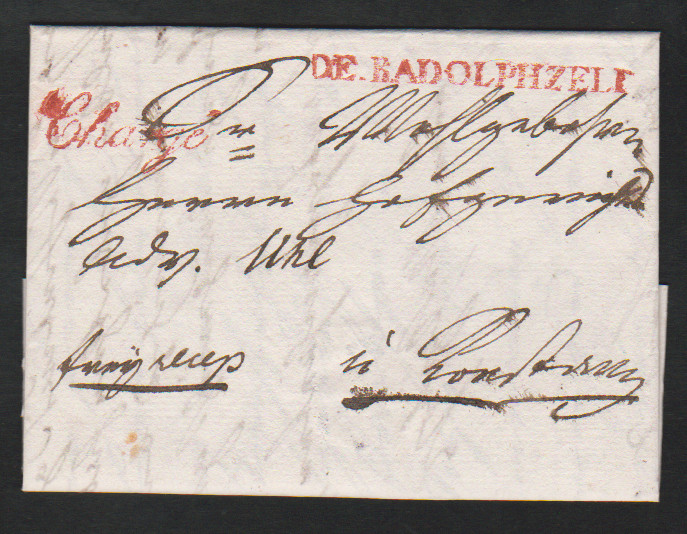 DE. RADOLPHZELL
Chargé
Wohlgebohren
Herrn Hofgerichts
Adv. Uhl
frey
Constanz